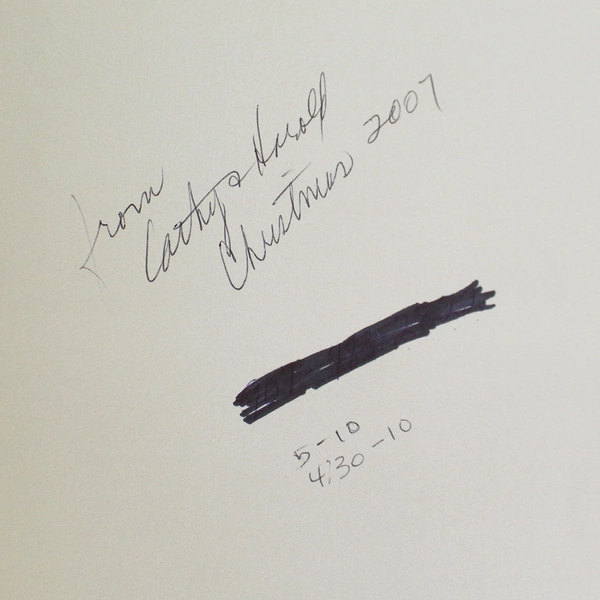 from
Cathy & Harold
Christmas 2007
5-10
4:30-10